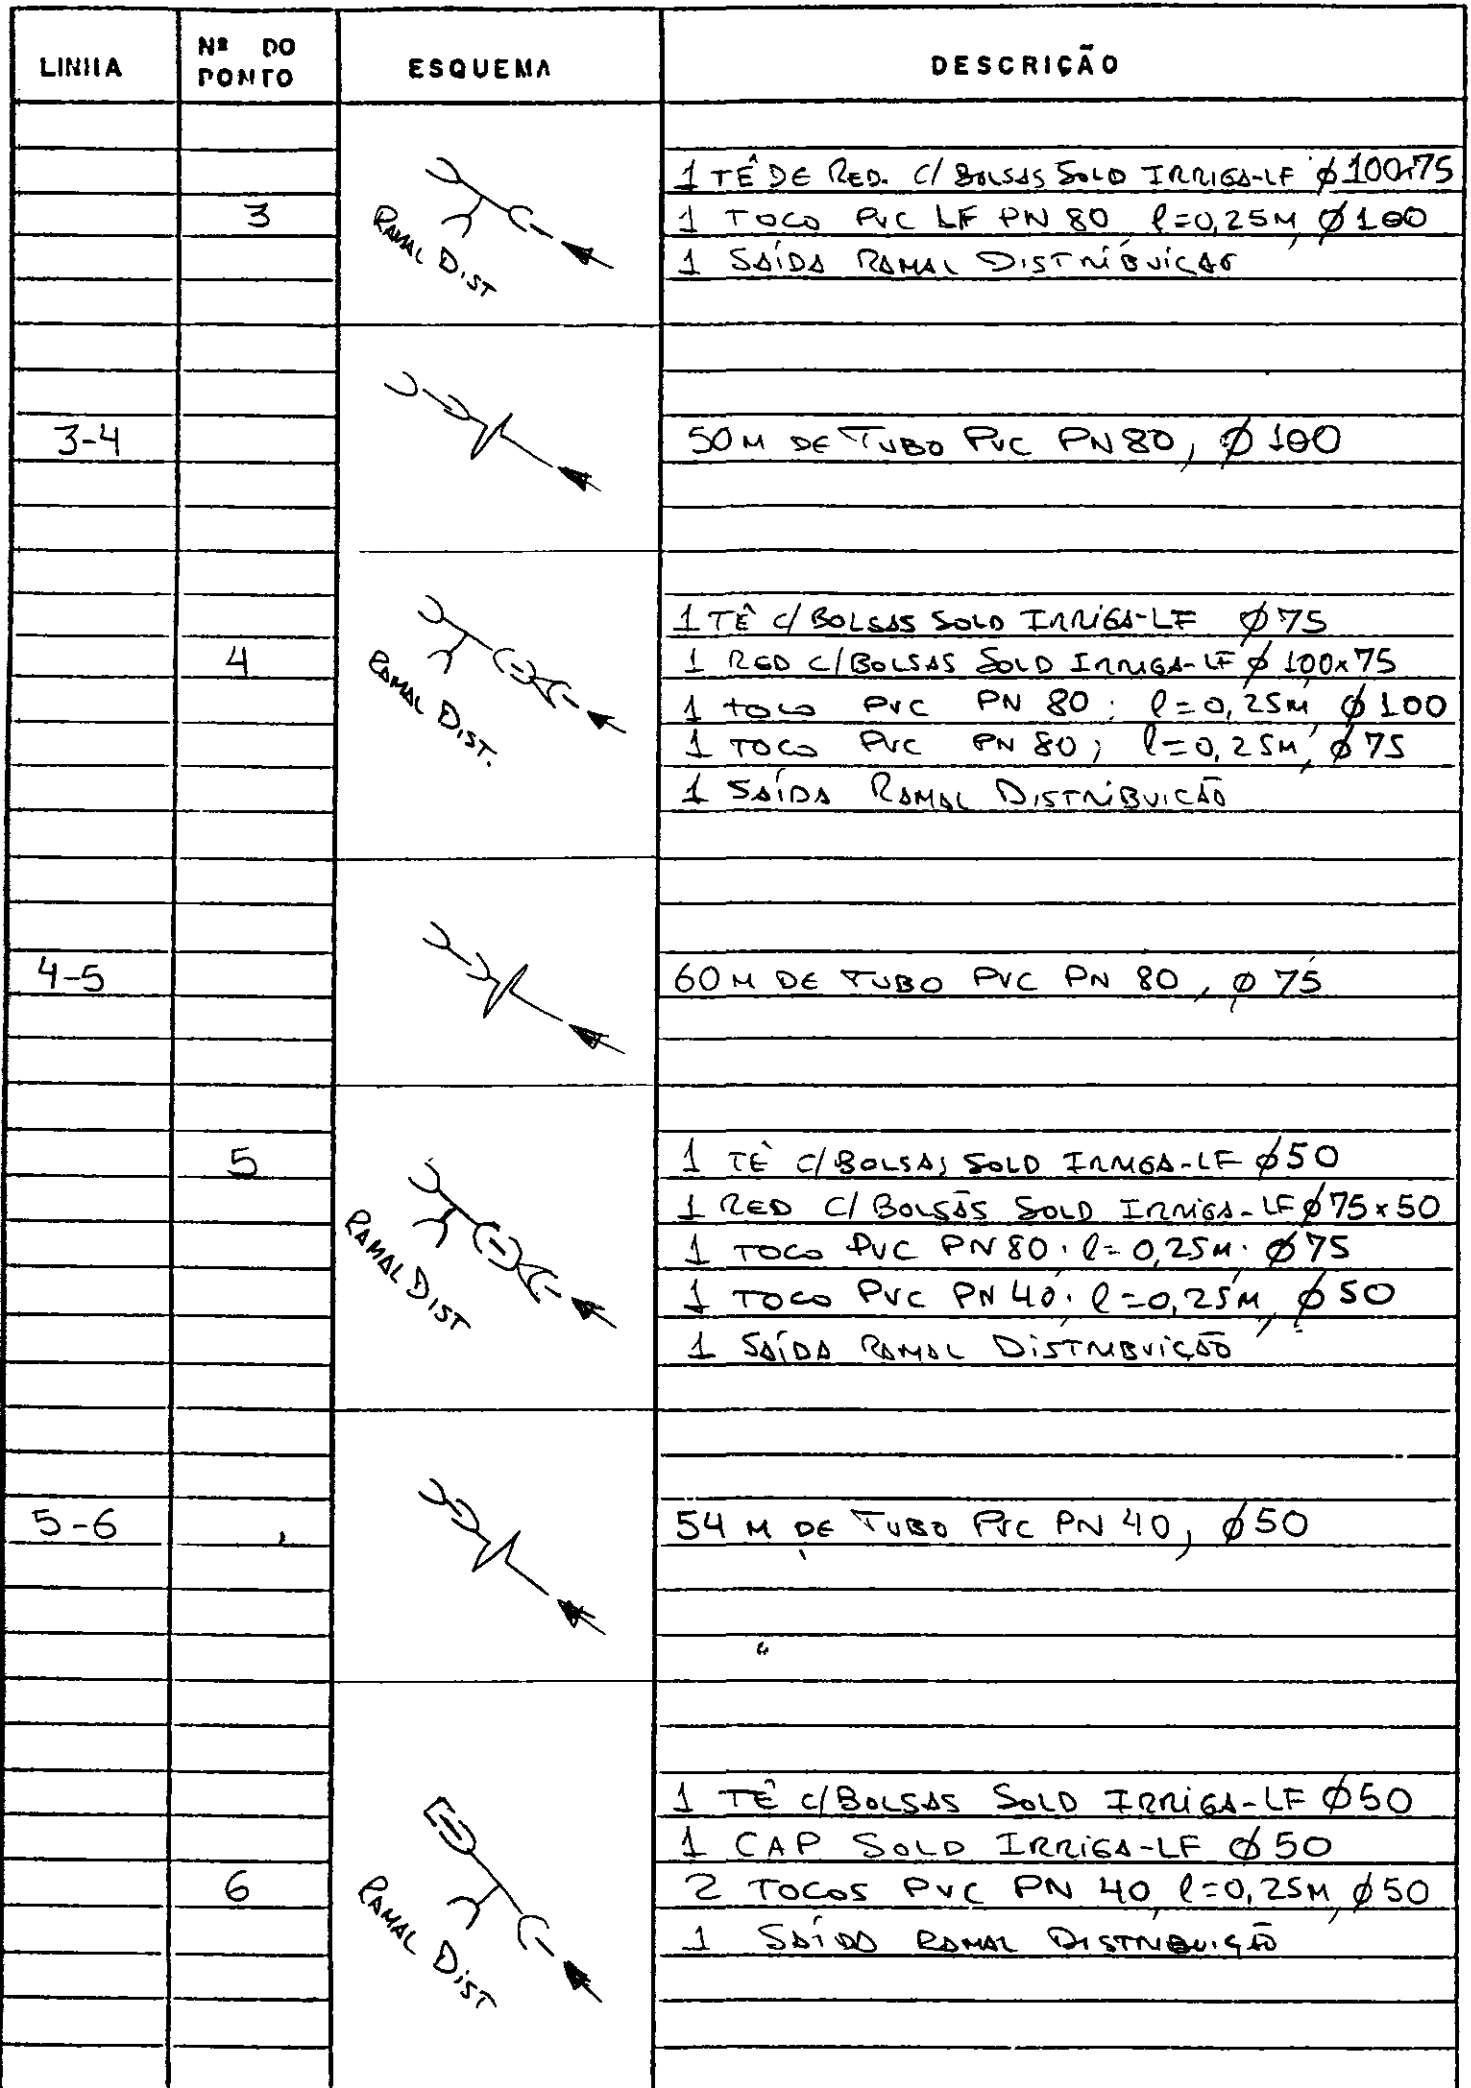 LINHA
Nº DO PONTO
ESQUEMA
DESCRIÇÃO
3
RAMAL DIST
1 TÊ DE RED. C/ BOLSAS SOLD IRRIGA-LF Ø100x75
1 TOCO PVC LF PN 80, l=0,25M, Ø100
1 SAÍDA RAMAL DISTRIBUIÇÃO
3-4
50 M DE TUBO PVC PN 80, Ø 100
4
RAMAL DIST.
1 TÊ C/ BOLSAS SOLD IRRIGA-LF Ø75
1 RED C/ BOLSAS SOLD IRRIGA-LF Ø 100x75
1 TOCO PVC PN 80; l=0,25M, Ø100
1 TOCO PVC PN 80; l=0,25M, Ø75
1 SAÍDA RAMAL DISTRIBUICÃO
4-5
60 M DE TUBO PVC PN 80, Ø 75
5
RAMAL DIST
1 TÊ C/ BOLSAS SOLD IRRIGA-LF Ø50
1 RED C/ BOLSAS SOLD IRRIGA-LF Ø75x50
1 TOCO PVC PN 80, l=0,25M, Ø75
1 TOCO PVC PN 40, l=0,25M, Ø50
1 SAÍDA RAMAL DISTRIBUIÇÃO
5-6
54 M DE TUBO PVC PN 40, Ø50
6
RAMAL DIST
1 TÊ C/ BOLSAS SOLD IRRIGA-LF Ø50
1 CAP SOLD IRRIGA-LF Ø50
2 TOCOS PVC PN 40, l=0,25M, Ø50
1 SAÍDA RAMAL DISTRIBUIÇÃO